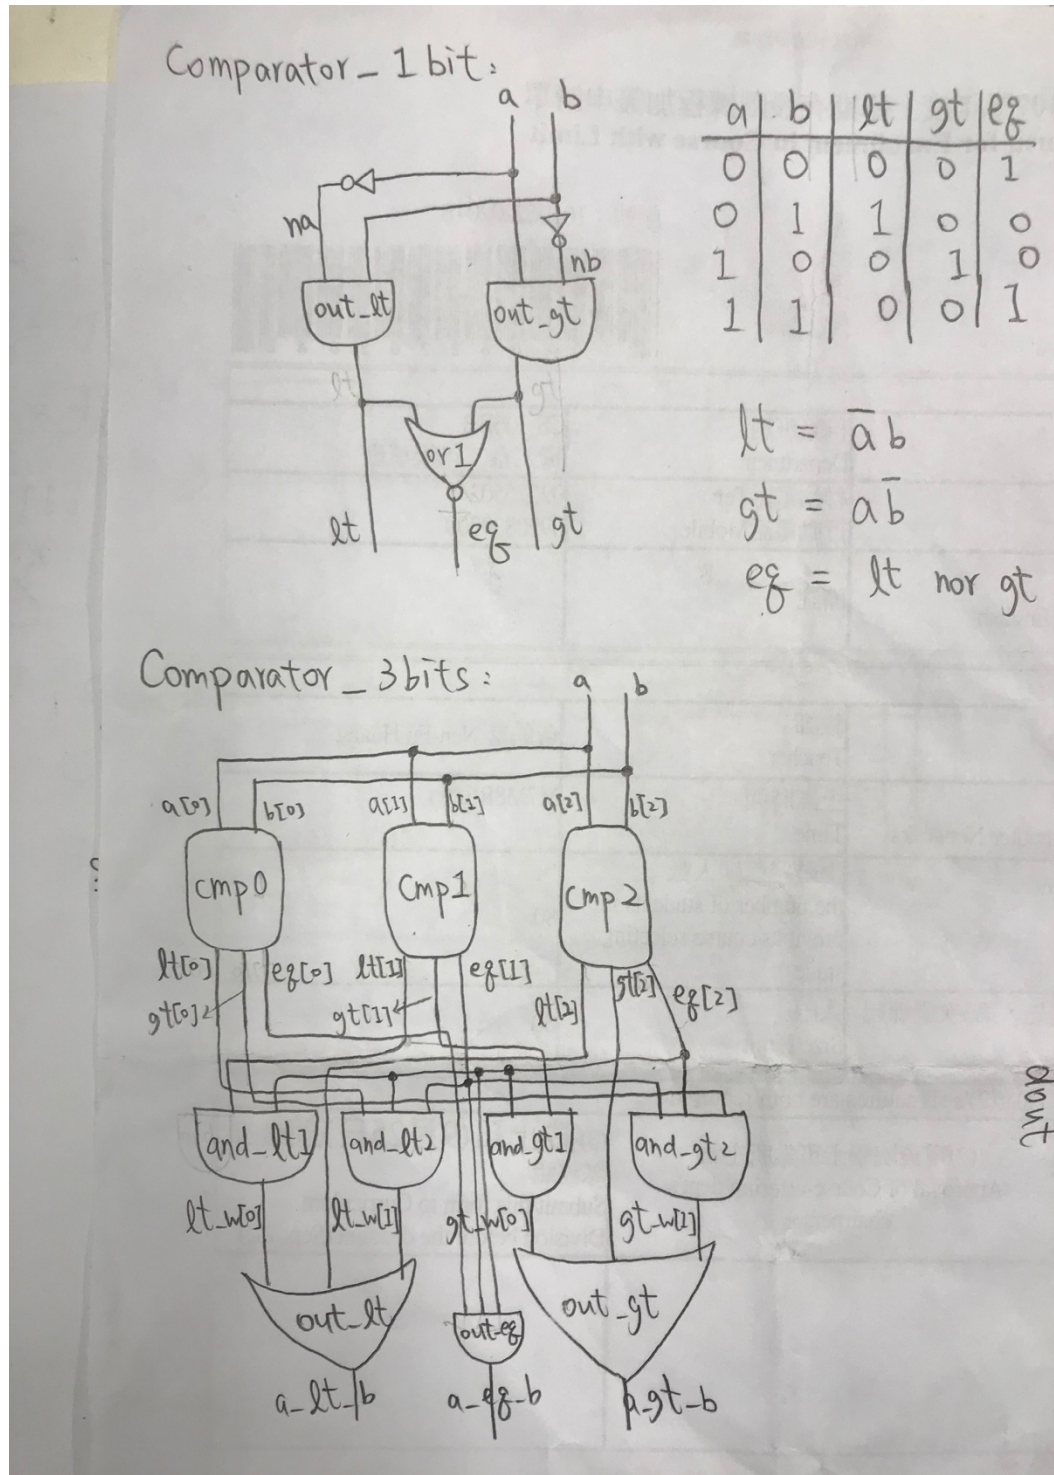 Comparator_1bit:
a b
na
nb
out_lt out_gt
or1
lt eq gt
a b lt gt eq
0 0 0 0 1
0 1 1 0 0
1 0 0 1 0
1 1 0 0 1
lt = a̅ b
gt = a b̅
eq = lt nor gt
Comparator_3bits:
a b
a[0] b[0] a[1] b[1] a[2] b[2]
cmp0 cmp1 cmp2
lt[0] eq[0] lt[1] eq[1] lt[2] gt[2] eq[2]
gt[0] gt[1]
and_lt1 and_lt2 and_gt1 and_gt2
lt_w[0] lt_w[1] gt_w[0] gt_w[1]
out_lt out_eq out_gt
a_lt_b a_eq_b a_gt_b
dout